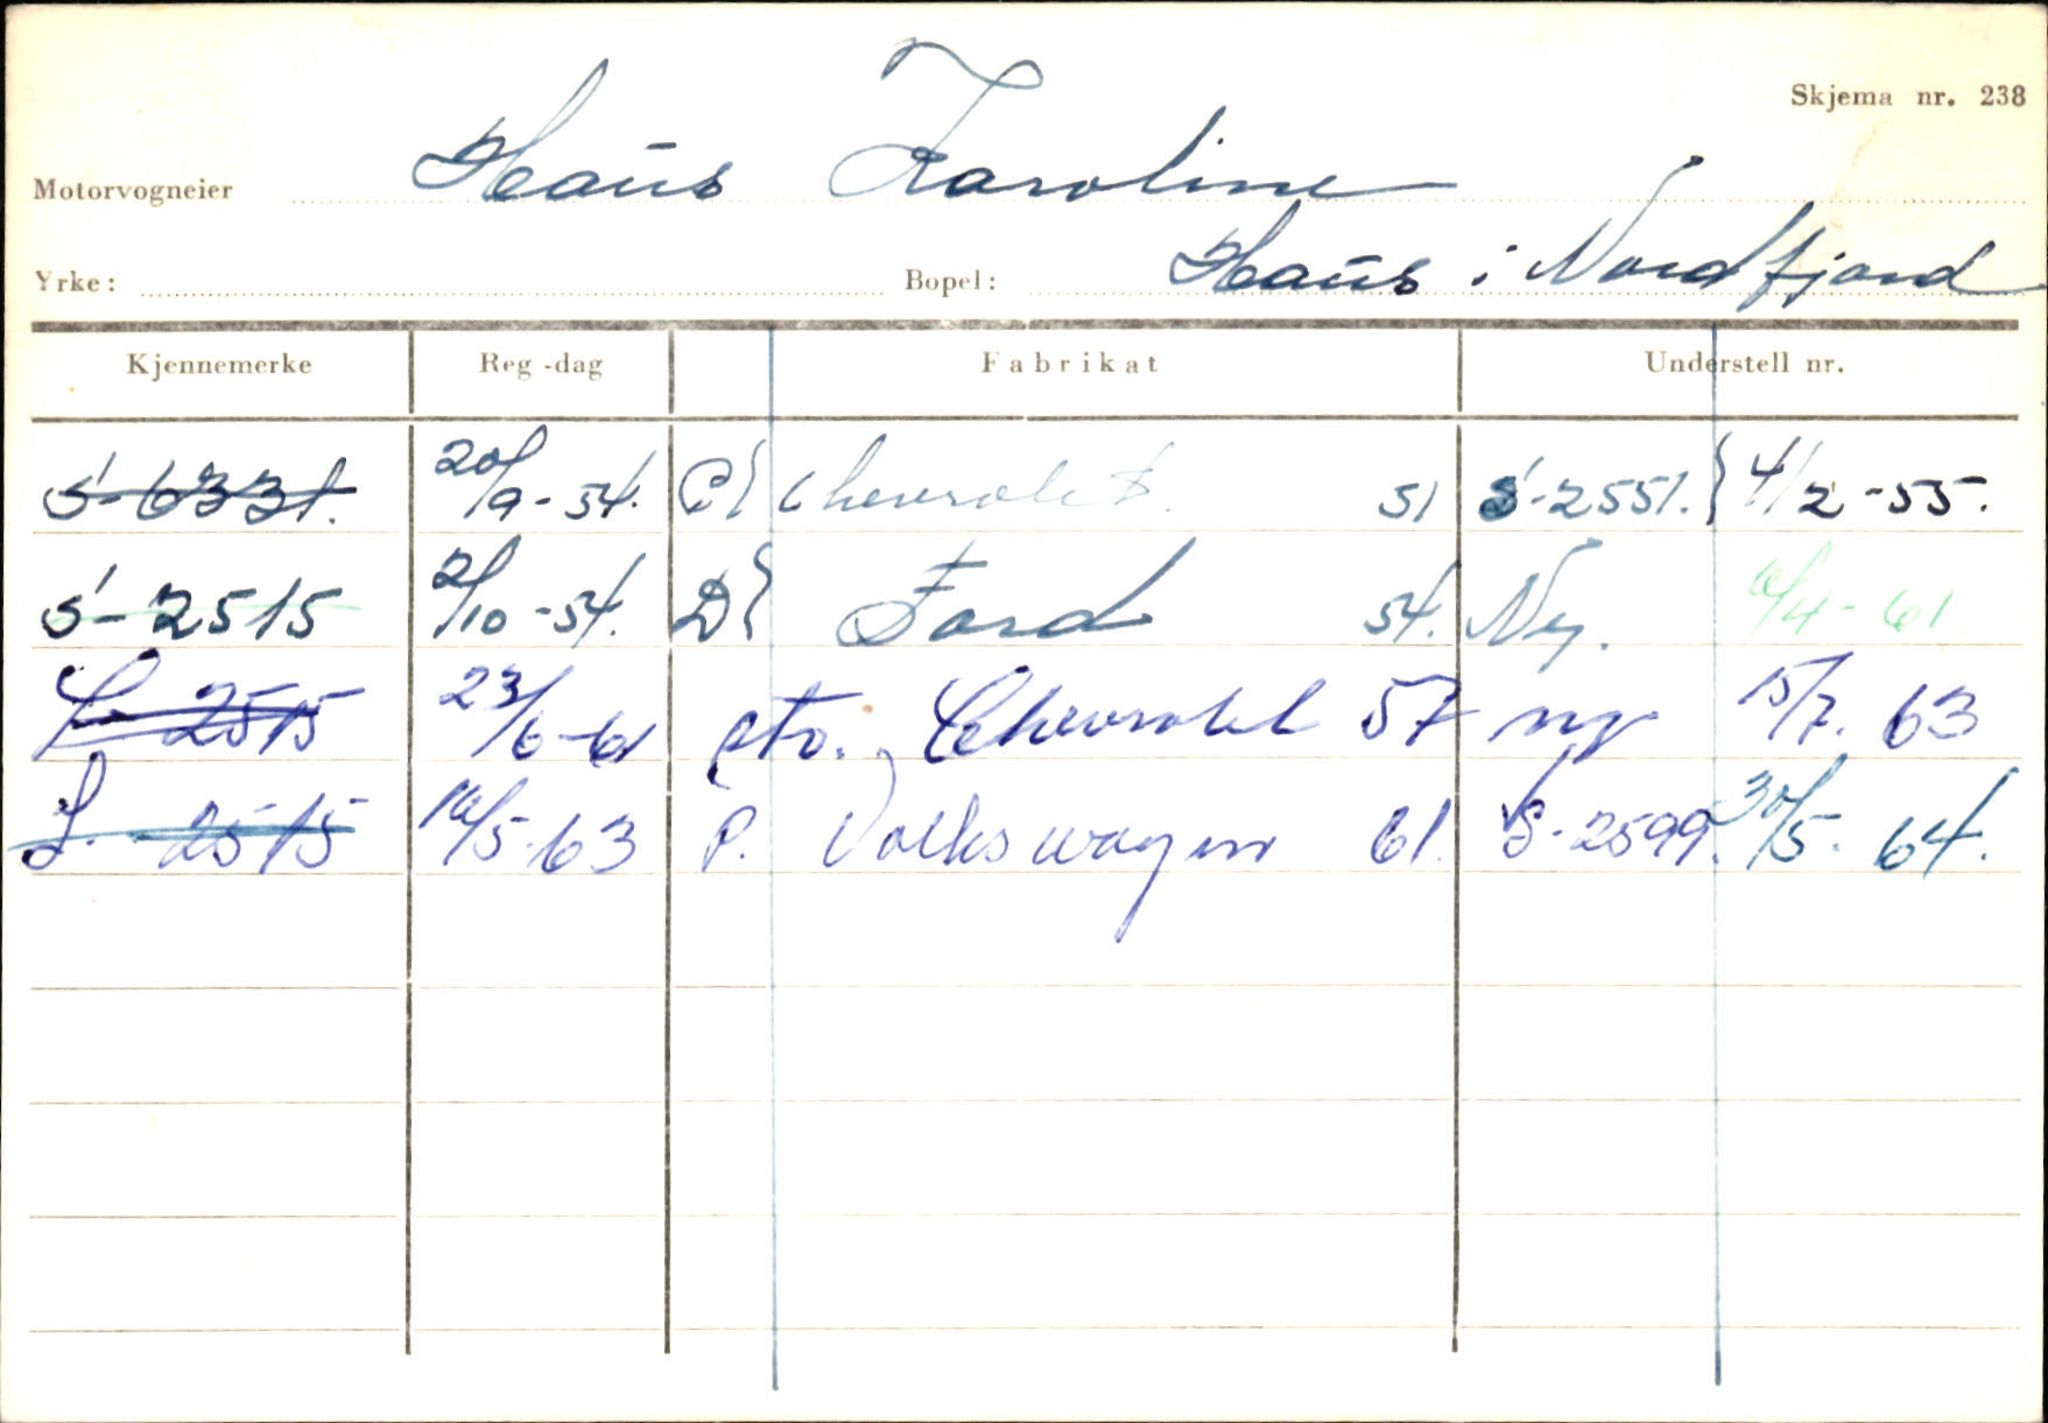 Skjema nr. 238
Motorvogneier Haus Karoline
Yrke: Bopel: Haus i Nordfjord
Kjennemerke Reg-dag Fabrikat Understell nr.
S-6331. 20/9-54. P Chevrolet. 51 S-2551. 4/2-55.
S-2515 2/10-54. D Ford 54. Ny. 10/4-61
S-2515 23/6-61 Chevrolet 57 ny 15/7. 63
S-2515 16/5-63 P. Volkswagen 61. S-2599. 30/5. 64.